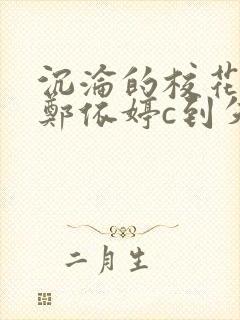 沉淪的校花
鄭依婷c到
二月生